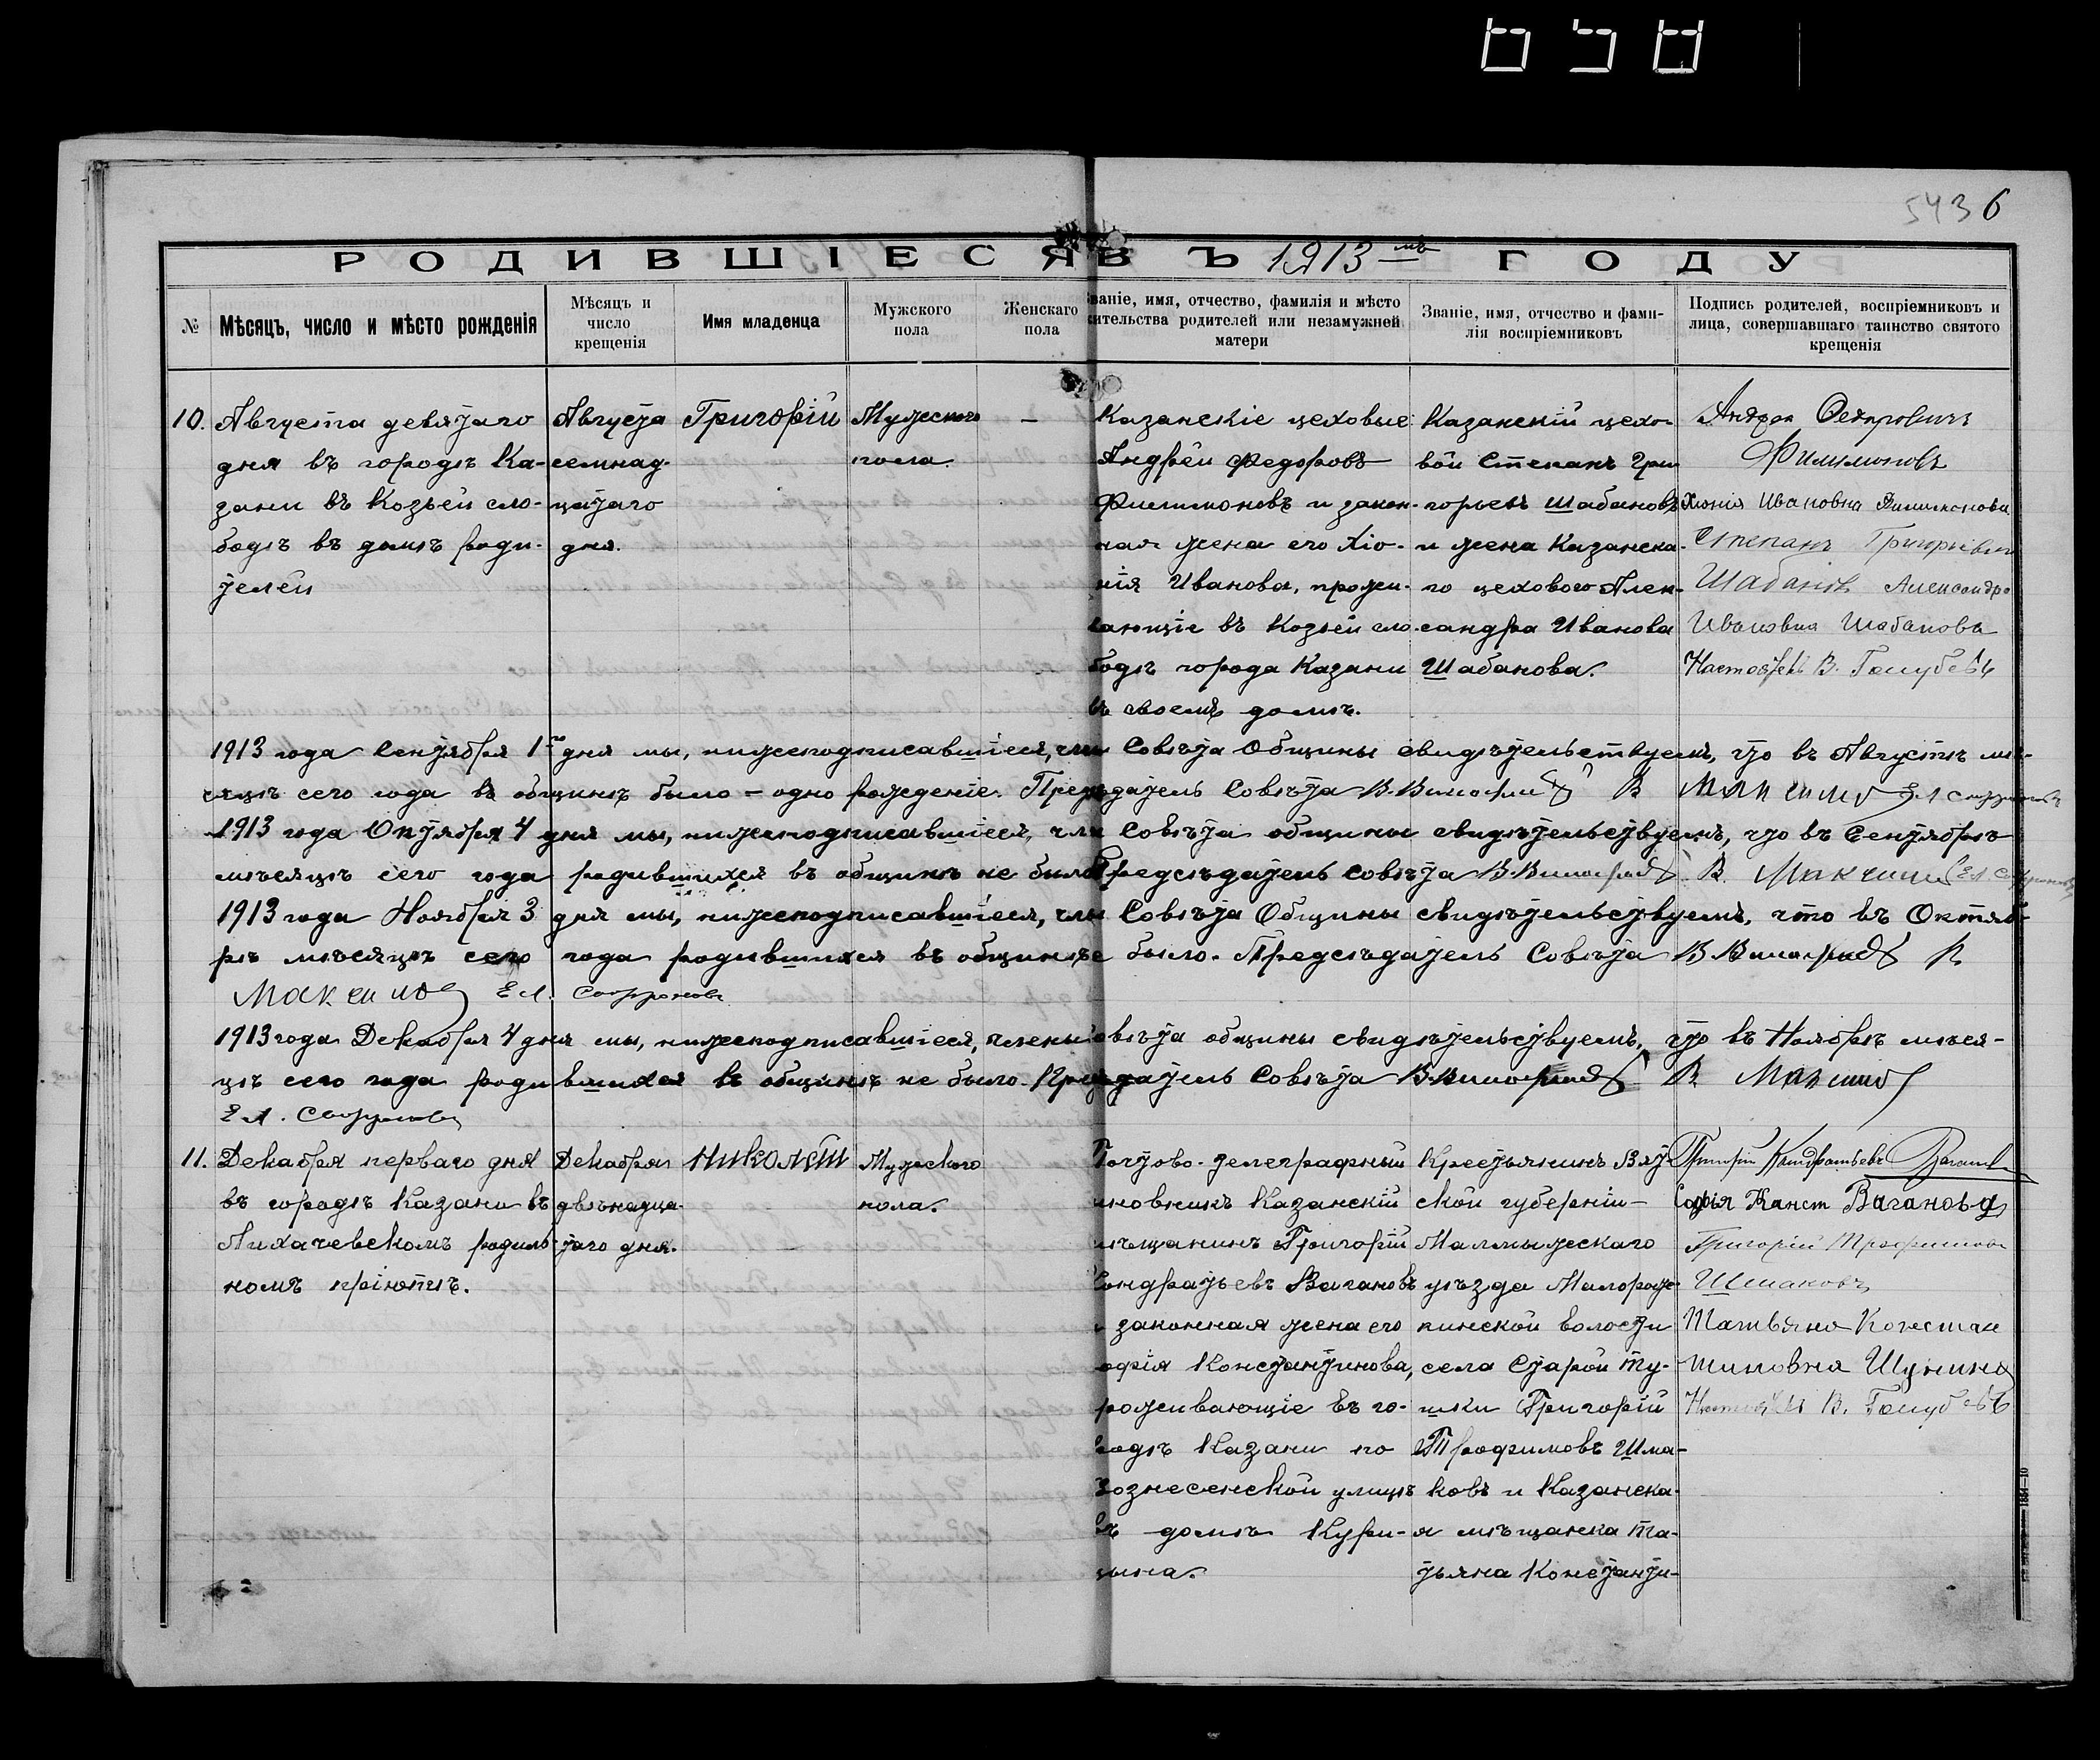 5436
РОДИВШІЕСЯ ВЪ 1913 мъ ГОДУ
№
Мѣсяцъ, число и мѣсто рожденія
Мѣсяцъ и
число
крещенія
Имя младенца
Мужского
пола
Женскаго
пола
званіе, имя, отчество, фамилія и мѣсто
жительства родителей или незамужней
матери
Званіе, имя, отчество и фами-
лія воспріемниковъ
Подпись родителей, воспріемниковъ и
лица, совершавшаго таинство святого
крещенія
10.
Августа девятаго
дня въ городѣ Ка-
зани въ Козьей сло-
бодѣ въ домѣ роди-
телей
Августа
семнад-
цатаго
дня.
Григорій
Мужского
пола.
–
Казанскіе цеховые
Андрей Федоровъ
Филимоновъ и закон-
ная жена его Хіо-
нія Иванова, прожи-
вающіе въ Козьей сло-
бодѣ города Казани
въ своемъ домѣ.
Казанскій цехо-
вой Степанъ Гри-
горьевъ Шабановъ
и жена Казанска-
го цехового Алек-
сандра Иванова
Шабанова.
Андрей Федоровичъ
Филимоновъ
Хіонія Ивановна Филимонова
Степанъ Григорьевичъ
Шабановъ Александра
Ивановна Шабанова
Настоятель В. Голубевъ
1913 года Сентября 1го дня мы, нижеподписавшіеся, чле Совѣта Общины свидѣтельствуемъ, что въ Августѣ мѣ-
сяцѣ сего года въ общинѣ было – одно рожденіе. Предсѣдатель Совѣта В. Виноградовъ В Максимов Ел Сафроновъ
1913 года Октября 4 дня мы, нижеподписавшіеся, чле Совѣта общины свидѣтельствуемъ, что въ Сентябрѣ
мѣсяцѣ сего года родившихся въ общинѣ не было Предсѣдатель Совѣта В. Виноградовъ. В. Максимов Ел. Сафронов
1913 года Ноября 3 дня мы, нижеподписавшіеся, чле Совѣта Общины свидѣтельствуемъ, что въ Октяб-
рѣ мѣсяцѣ сего года родившихся въ общинѣ не было. Предсѣдатель Совѣта В Виноградовъ В.
Максимов Ел. Сафронов
1913 года Декабря 4 дня мы, нижеподписавшіеся, члены Совѣта общины свидѣтельствуемъ, что въ Ноябрѣ мѣся-
цѣ сего года родившихся въ общинѣ не было. Предсѣдатель Совѣта В. Виноградовъ В. Максимов
Ел. Сафронов
11.
Декабря перваго дня
въ городѣ Казани въ
Лихачевскомъ родиль-
номъ пріютѣ.
Декабря
двѣнадца-
таго дня.
Николай
Мужского
пола.
Почтово-телеграфный
чиновникъ Казанскій
мѣщанинъ Григорій
Кондратьевъ Вагановъ
и законная жена его
Софія Константинова,
проживающіе въ го-
родѣ Казани по
Вознесенской улицѣ
въ домѣ Кури-
цына.
Крестьянинъ Вят-
ской губерніи –
Малмыжскаго
уѣзда Малорож-
кинской волости
села Старой Ту-
шки Григорій
Трофимовъ Шма-
ковъ и Казанска-
я мѣщанка Та-
тьяна Константи-
Григорій Кондратьевъ Вагановъ
Софія Конст Ваганова
Григорій Трофимовъ
Шмаковъ
Татьяна Констан
тиновна Шунина
Настоятель В. Голубевъ